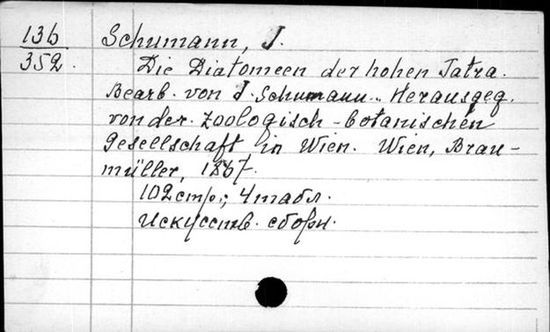 136
352.
Schumann, J.
Die Diatomeen der hohen Tatra.
Bearb. von J. Schumann. Herausgeg.
von der. zoologisch-botanischen
Gesellschaft in Wien. Wien, Brau-
müller, 1867.
102 стр.; 4 табл.
Искусств. сборн.